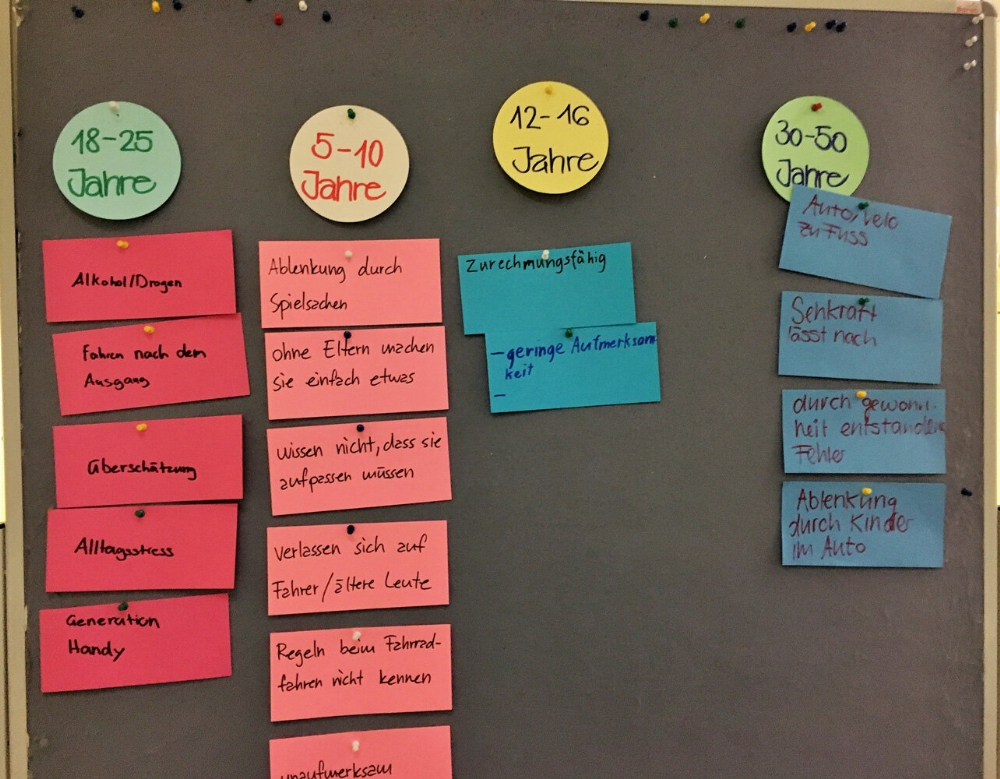 18-25
Jahre
Alkohol/Drogen
Fahren nach dem
Ausgang
Überschätzung
Alltagsstress
Generation
Handy
5-10
Jahre
Ablenkung durch
Spielsachen
ohne Eltern machen
sie einfach etwas
wissen nicht, dass sie
aufpassen müssen
verlassen sich auf
Fahrer/ältere Leute
Regeln beim Fahrrad-
fahren nicht kennen
unaufmerksam
12-16
Jahre
Zurechnungsfähig
- geringe Aufmerksam-
keit
-
30-50
Jahre
Auto, Velo
zu Fuss
Sehkraft
lässt nach
durch gewohn-
heit entstandene
Fehler
Ablenkung
durch Kinder
im Auto